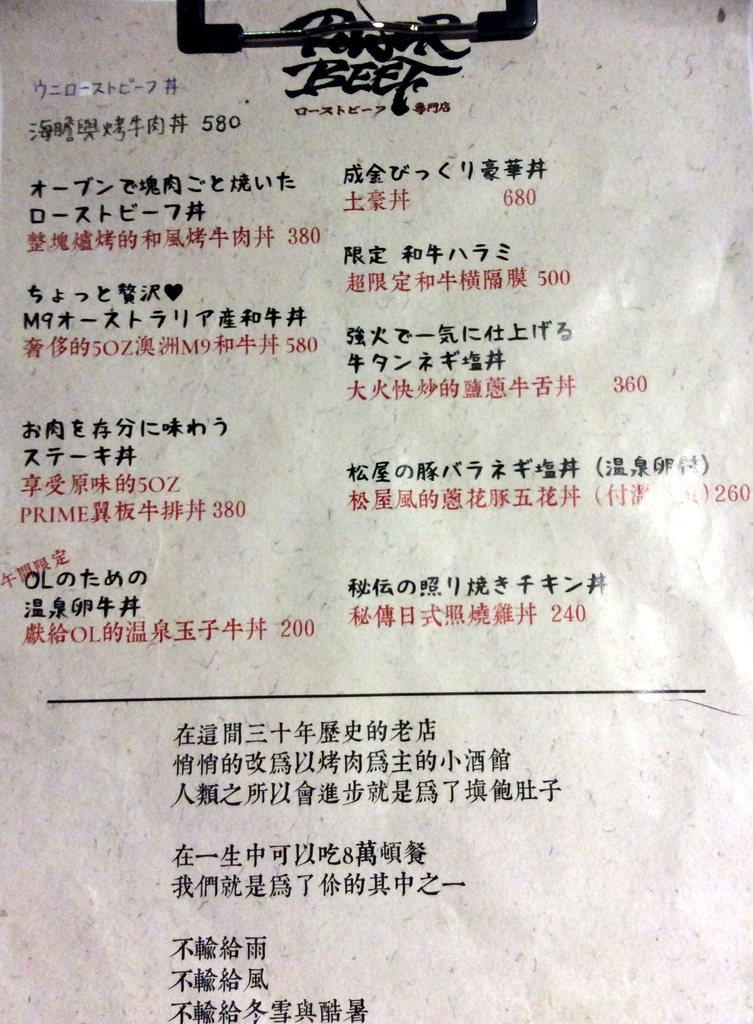 POWER
BEEF
ローストビーフ 専門店
ウニローストビーフ丼
海膽與烤牛肉丼 580
オーブンで塊肉ごと焼いた
ローストビーフ丼
整塊爐烤的和風烤牛肉丼 380
ちょっと贅沢♥
M9オーストラリア産和牛丼
奢侈的5OZ澳洲M9和牛丼 580
お肉を存分に味わう
ステーキ丼
享受原味的5OZ
PRIME翼板牛排丼 380
午間限定
OLのための
温泉卵牛丼
獻給OL的溫泉玉子牛丼 200
成金びっくり豪華丼
土豪丼 680
限定 和牛ハラミ
超限定和牛橫隔膜 500
強火で一気に仕上げる
牛タンネギ塩丼
大火快炒的鹽蔥牛舌丼 360
松屋の豚バラネギ塩丼 (温泉卵付)
松屋風的蔥花豚五花丼 (付溫 ) 260
秘伝の照り焼きチキン丼
秘傳日式照燒雞丼 240
在這間三十年歷史的老店
悄悄的改為以烤肉為主的小酒館
人類之所以會進步就是為了填飽肚子
在一生中可以吃8萬頓餐
我們就是為了你的其中之一
不輸給雨
不輸給風
不輸給冬雪與酷暑